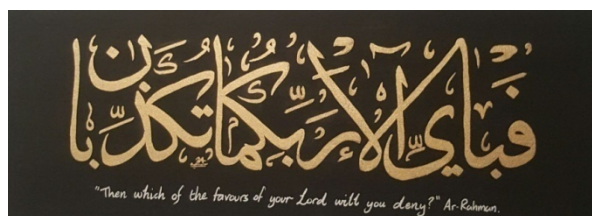 فَبِأَيِّ آلَاءِ رَبِّكُمَا تُكَذِّبَانِ
"Then which of the favours of your Lord will you deny?" Ar-Rahman.